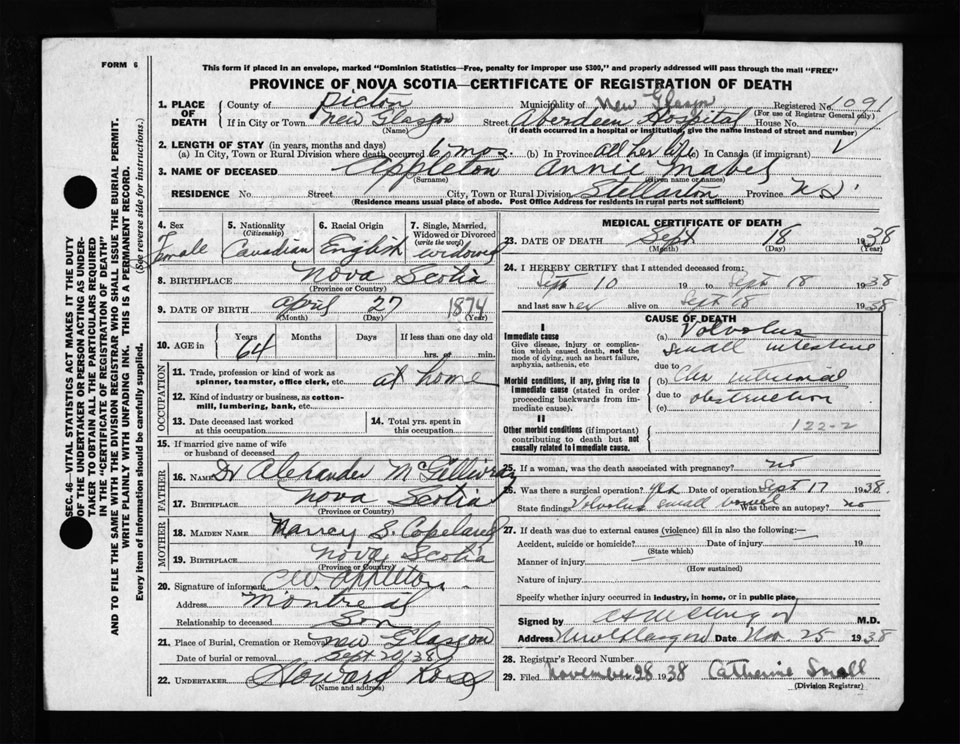 FORM 6
This form if placed in an envelope, marked "Dominion Statistics—Free, penalty for improper use $300," and properly addressed will pass through the mail "FREE"
PROVINCE OF NOVA SCOTIA—CERTIFICATE OF REGISTRATION OF DEATH
1. PLACE OF DEATH
County of Pictou Municipality of New Glasgow Registered No. 1091
(For use of Registrar General only)
If in City or Town New Glasgow Street Aberdeen Hospital House No.
(Name) (If death occurred in a hospital or institution, give the name instead of street and number)
2. LENGTH OF STAY (in years, months and days)
(a) In City, Town or Rural Division where death occurred 6 mos. (b) In Province all her life (c) In Canada (if immigrant)
3. NAME OF DECEASED Appleton Annie Mabel
(Surname) (Given name or names)
RESIDENCE No. Street. City, Town or Rural Division Stellarton Province N.S.
(Residence means usual place of abode. Post Office Address for residents in rural parts not sufficient)
4. Sex Female
5. Nationality (Citizenship) Canadian
6. Racial Origin English
7. Single, Married, Widowed or Divorced (write the word) widowed
8. BIRTHPLACE Nova Scotia
(Province or Country)
9. DATE OF BIRTH April 27 1874
(Month) (Day) (Year)
10. AGE in Years Months Days If less than one day old
64 hrs. or min.
OCCUPATION
11. Trade, profession or kind of work as spinner, teamster, office clerk, etc. at home
12. Kind of industry or business, as cotton-mill, lumbering, bank, etc.
13. Date deceased last worked at this occupation
14. Total yrs. spent in this occupation
15. If married give name of wife or husband of deceased
FATHER
16. NAME Dr Alexander McGillivray
17. BIRTHPLACE Nova Scotia
(Province or Country)
MOTHER
18. MAIDEN NAME Nancy S. Copeland
19. BIRTHPLACE Nova Scotia
(Province or Country)
20. Signature of informant C.W. Appleton
Address Montreal
Relationship to deceased Son
21. Place of Burial, Cremation or Removal New Glasgow
Date of burial or removal Sept 20/38
22. UNDERTAKER Howard Ross
(Name and address)
MEDICAL CERTIFICATE OF DEATH
23. DATE OF DEATH Sept 18 1938
(Month) (Day)
24. I HEREBY CERTIFY that I attended deceased from:
Sept 10 19 to Sept 18 1938
and last saw her alive on Sept 18 1938
CAUSE OF DEATH
I
Immediate cause
Give disease, injury or complication which caused death, not the mode of dying, such as heart failure, asphyxia, asthenia, etc
(a) Volvolus
small intestine
due to
Morbid conditions, if any, giving rise to immediate cause (stated in order proceeding backwards from immediate cause).
(b) intestinal
due to obstruction
(c)
II
Other morbid conditions (if important) contributing to death but not causally related to immediate cause.
122-2
25. If a woman, was the death associated with pregnancy? no
26. Was there a surgical operation? yes Date of operation Sept 17 1938.
State findings Volvolus small bowel Was there an autopsy? no
27. If death was due to external causes (violence) fill in also the following:—
Accident, suicide or homicide? Date of injury 19
(State which)
Manner of injury
(How sustained)
Nature of injury
Specify whether injury occurred in industry, in home, or in public place
Signed by M.D.
Address New Glasgow Date Nov. 25 1938
28. Registrar's Record Number
29. Filed November 28 1938 Catherine Small
(Division Registrar)
SEC. 46—VITAL STATISTICS ACT MAKES IT THE DUTY
OF THE UNDERTAKER OR PERSON ACTING AS UNDER-
TAKER TO OBTAIN ALL THE PARTICULARS REQUIRED
IN THE "CERTIFICATE OF REGISTRATION OF DEATH"
AND TO FILE THE SAME WITH THE DIVISION REGISTRAR WHO SHALL ISSUE THE BURIAL PERMIT.
WRITE PLAINLY WITH UNFADING INK. THIS IS A PERMANENT RECORD.
Every item of information should be carefully supplied. (See reverse side for instructions.)